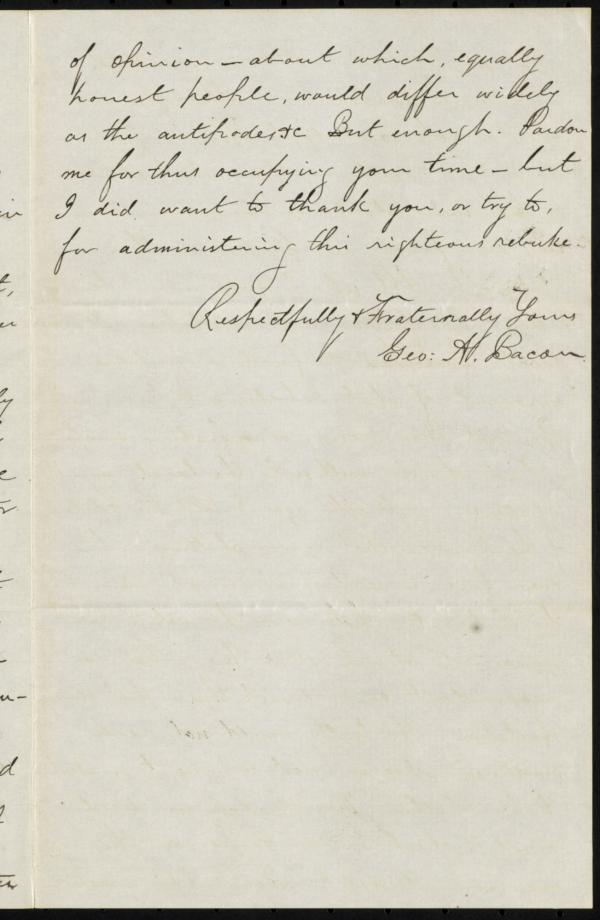 of opinion — about which, equally
honest people, would differ widely
as the antipodes &c But enough. Pardon
me for thus occupying your time — but
I did want to thank you, or try to,
for administering this righteous rebuke.
Respectfully & Fraternally Yours
Geo: H. Bacon.